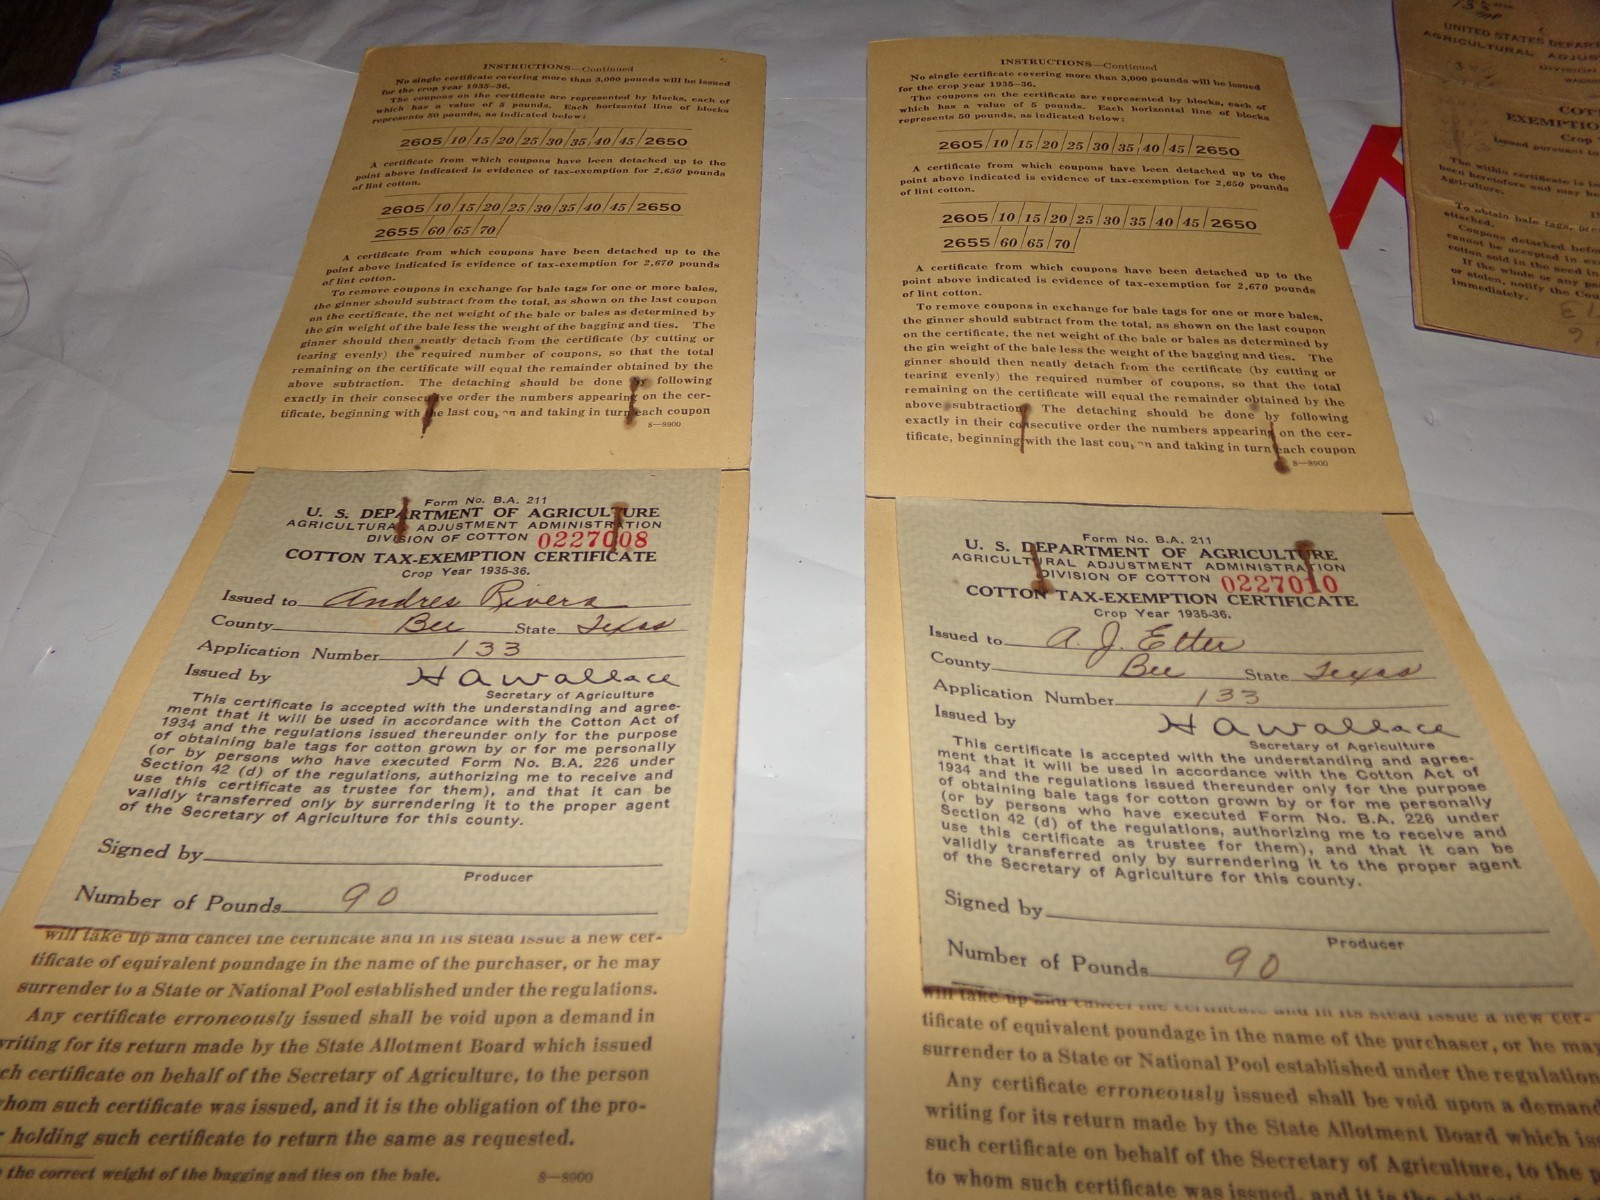 INSTRUCTIONS—Continued
No single certificate covering more than 3,000 pounds will be issued
for the crop year 1935-36.
The coupons on the certificate are represented by blocks, each of
which has a value of 5 pounds. Each horizontal line of blocks
represents 50 pounds, as indicated below:
2605/10/15/20/25/30/35/40/45/2650
A certificate from which coupons have been detached up to the
point above indicated is evidence of tax-exemption for 2,650 pounds
of lint cotton.
2605/10/15/20/25/30/35/40/45/2650
2655/60/65/70/
A certificate from which coupons have been detached up to the
point above indicated is evidence of tax-exemption for 2,670 pounds
of lint cotton.
To remove coupons in exchange for bale tags for one or more bales,
the ginner should subtract from the total, as shown on the last coupon
on the certificate, the net weight of the bale or bales as determined by
the gin weight of the bale less the weight of the bagging and ties. The
ginner should then neatly detach from the certificate (by cutting or
tearing evenly) the required number of coupons, so that the total
remaining on the certificate will equal the remainder obtained by the
above subtraction. The detaching should be done by following
exactly in their consecutive order the numbers appearing on the cer-
tificate, beginning with the last coupon and taking in turn each coupon
8—8900
Form No. B.A. 211
U. S. DEPARTMENT OF AGRICULTURE
AGRICULTURAL ADJUSTMENT ADMINISTRATION
DIVISION OF COTTON 0227008
COTTON TAX-EXEMPTION CERTIFICATE
Crop Year 1935-36.
Issued to Andres Rivera
County Bee State Texas
Application Number 133
Issued by H A Wallace
Secretary of Agriculture
This certificate is accepted with the understanding and agree-
ment that it will be used in accordance with the Cotton Act of
1934 and the regulations issued thereunder only for the purpose
of obtaining bale tags for cotton grown by or for me personally
(or by persons who have executed Form No. B.A. 226 under
Section 42 (d) of the regulations, authorizing me to receive and
use this certificate as trustee for them), and that it can be
validly transferred only by surrendering it to the proper agent
of the Secretary of Agriculture for this county.
Signed by
Producer
Number of Pounds 90
will take up and cancel the certificate and in its stead issue a new cer-
tificate of equivalent poundage in the name of the purchaser, or he may
surrender to a State or National Pool established under the regulations.
Any certificate erroneously issued shall be void upon a demand in
writing for its return made by the State Allotment Board which issued
ch certificate on behalf of the Secretary of Agriculture, to the person
whom such certificate was issued, and it is the obligation of the pro-
r holding such certificate to return the same as requested.
the correct weight of the bagging and ties on the bale.
8—8900
INSTRUCTIONS—Continued
No single certificate covering more than 3,000 pounds will be issued
for the crop year 1935-36.
The coupons on the certificate are represented by blocks, each of
which has a value of 5 pounds. Each horizontal line of blocks
represents 50 pounds, as indicated below:
2605/10/15/20/25/30/35/40/45/2650
A certificate from which coupons have been detached up to the
point above indicated is evidence of tax-exemption for 2,650 pounds
of lint cotton.
2605/10/15/20/25/30/35/40/45/2650
2655/60/65/70/
A certificate from which coupons have been detached up to the
point above indicated is evidence of tax-exemption for 2,670 pounds
of lint cotton.
To remove coupons in exchange for bale tags for one or more bales,
the ginner should subtract from the total, as shown on the last coupon
on the certificate, the net weight of the bale or bales as determined by
the gin weight of the bale less the weight of the bagging and ties. The
ginner should then neatly detach from the certificate (by cutting or
tearing evenly) the required number of coupons, so that the total
remaining on the certificate will equal the remainder obtained by the
above subtraction. The detaching should be done by following
exactly in their consecutive order the numbers appearing on the cer-
tificate, beginning with the last coupon and taking in turn each coupon
8—8900
Form No. B.A. 211
U. S. DEPARTMENT OF AGRICULTURE
AGRICULTURAL ADJUSTMENT ADMINISTRATION
DIVISION OF COTTON 0227010
COTTON TAX-EXEMPTION CERTIFICATE
Crop Year 1935-36.
Issued to A. J. Etter
County Bee State Texas
Application Number 133
Issued by H A Wallace
Secretary of Agriculture
This certificate is accepted with the understanding and agree-
ment that it will be used in accordance with the Cotton Act of
1934 and the regulations issued thereunder only for the purpose
of obtaining bale tags for cotton grown by or for me personally
(or by persons who have executed Form No. B.A. 226 under
Section 42 (d) of the regulations, authorizing me to receive and
use this certificate as trustee for them), and that it can be
validly transferred only by surrendering it to the proper agent
of the Secretary of Agriculture for this county.
Signed by
Producer
Number of Pounds 90
will take up and cancel the certificate and in its stead issue a new cer-
tificate of equivalent poundage in the name of the purchaser, or he may
surrender to a State or National Pool established under the regulation
Any certificate erroneously issued shall be void upon a demand
writing for its return made by the State Allotment Board which iss
such certificate on behalf of the Secretary of Agriculture, to the p
to whom such certificate was issued, and it is the
UNITED STATES DEPAR
AGRICULTURAL ADJUS
DIVISION
COTT
EXEMPTIO
Crop
Issued pursuant to
The within certificate is
been heretofore and may be
Agriculture.
To obtain bale tags,
attached.
Coupons detached befo
cannot be accepted in ex
cotton sold in the seed in
If the whole or any po
or stolen, notify the Cou
immediately.